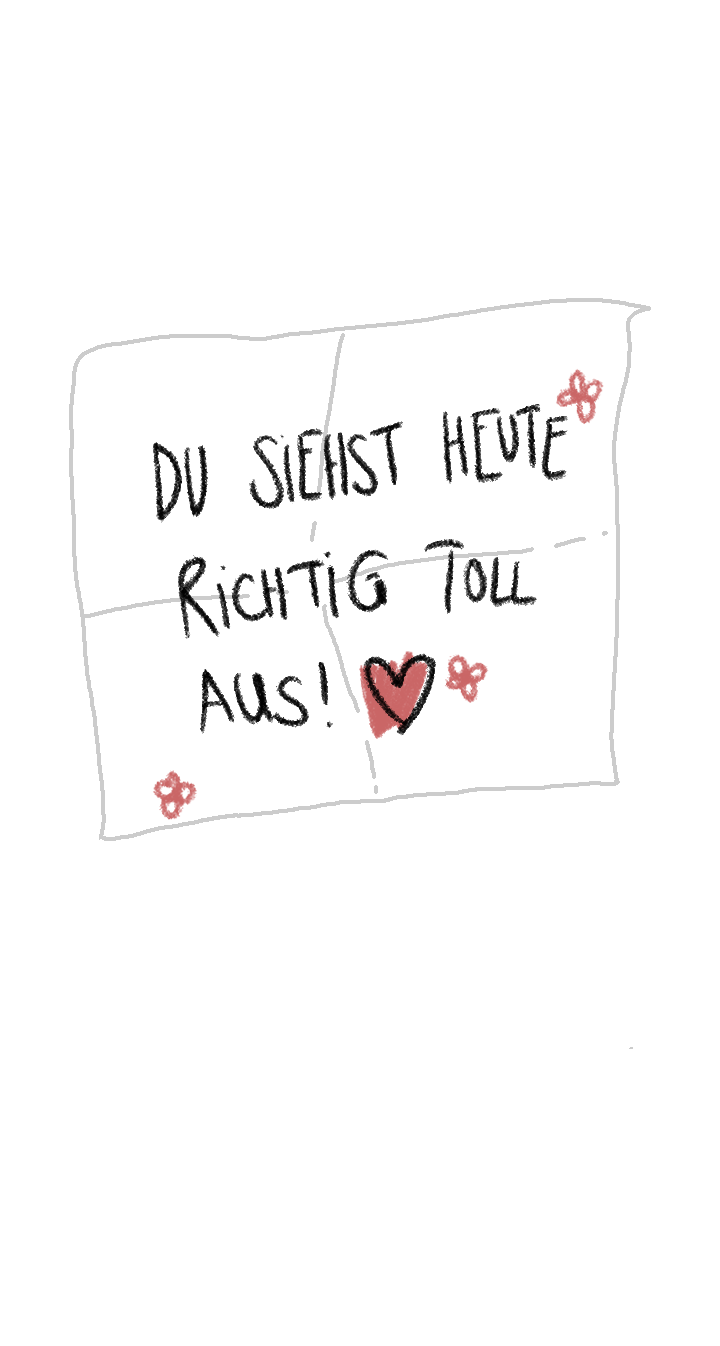 DU SIEHST HEUTE
RICHTIG TOLL
AUS!